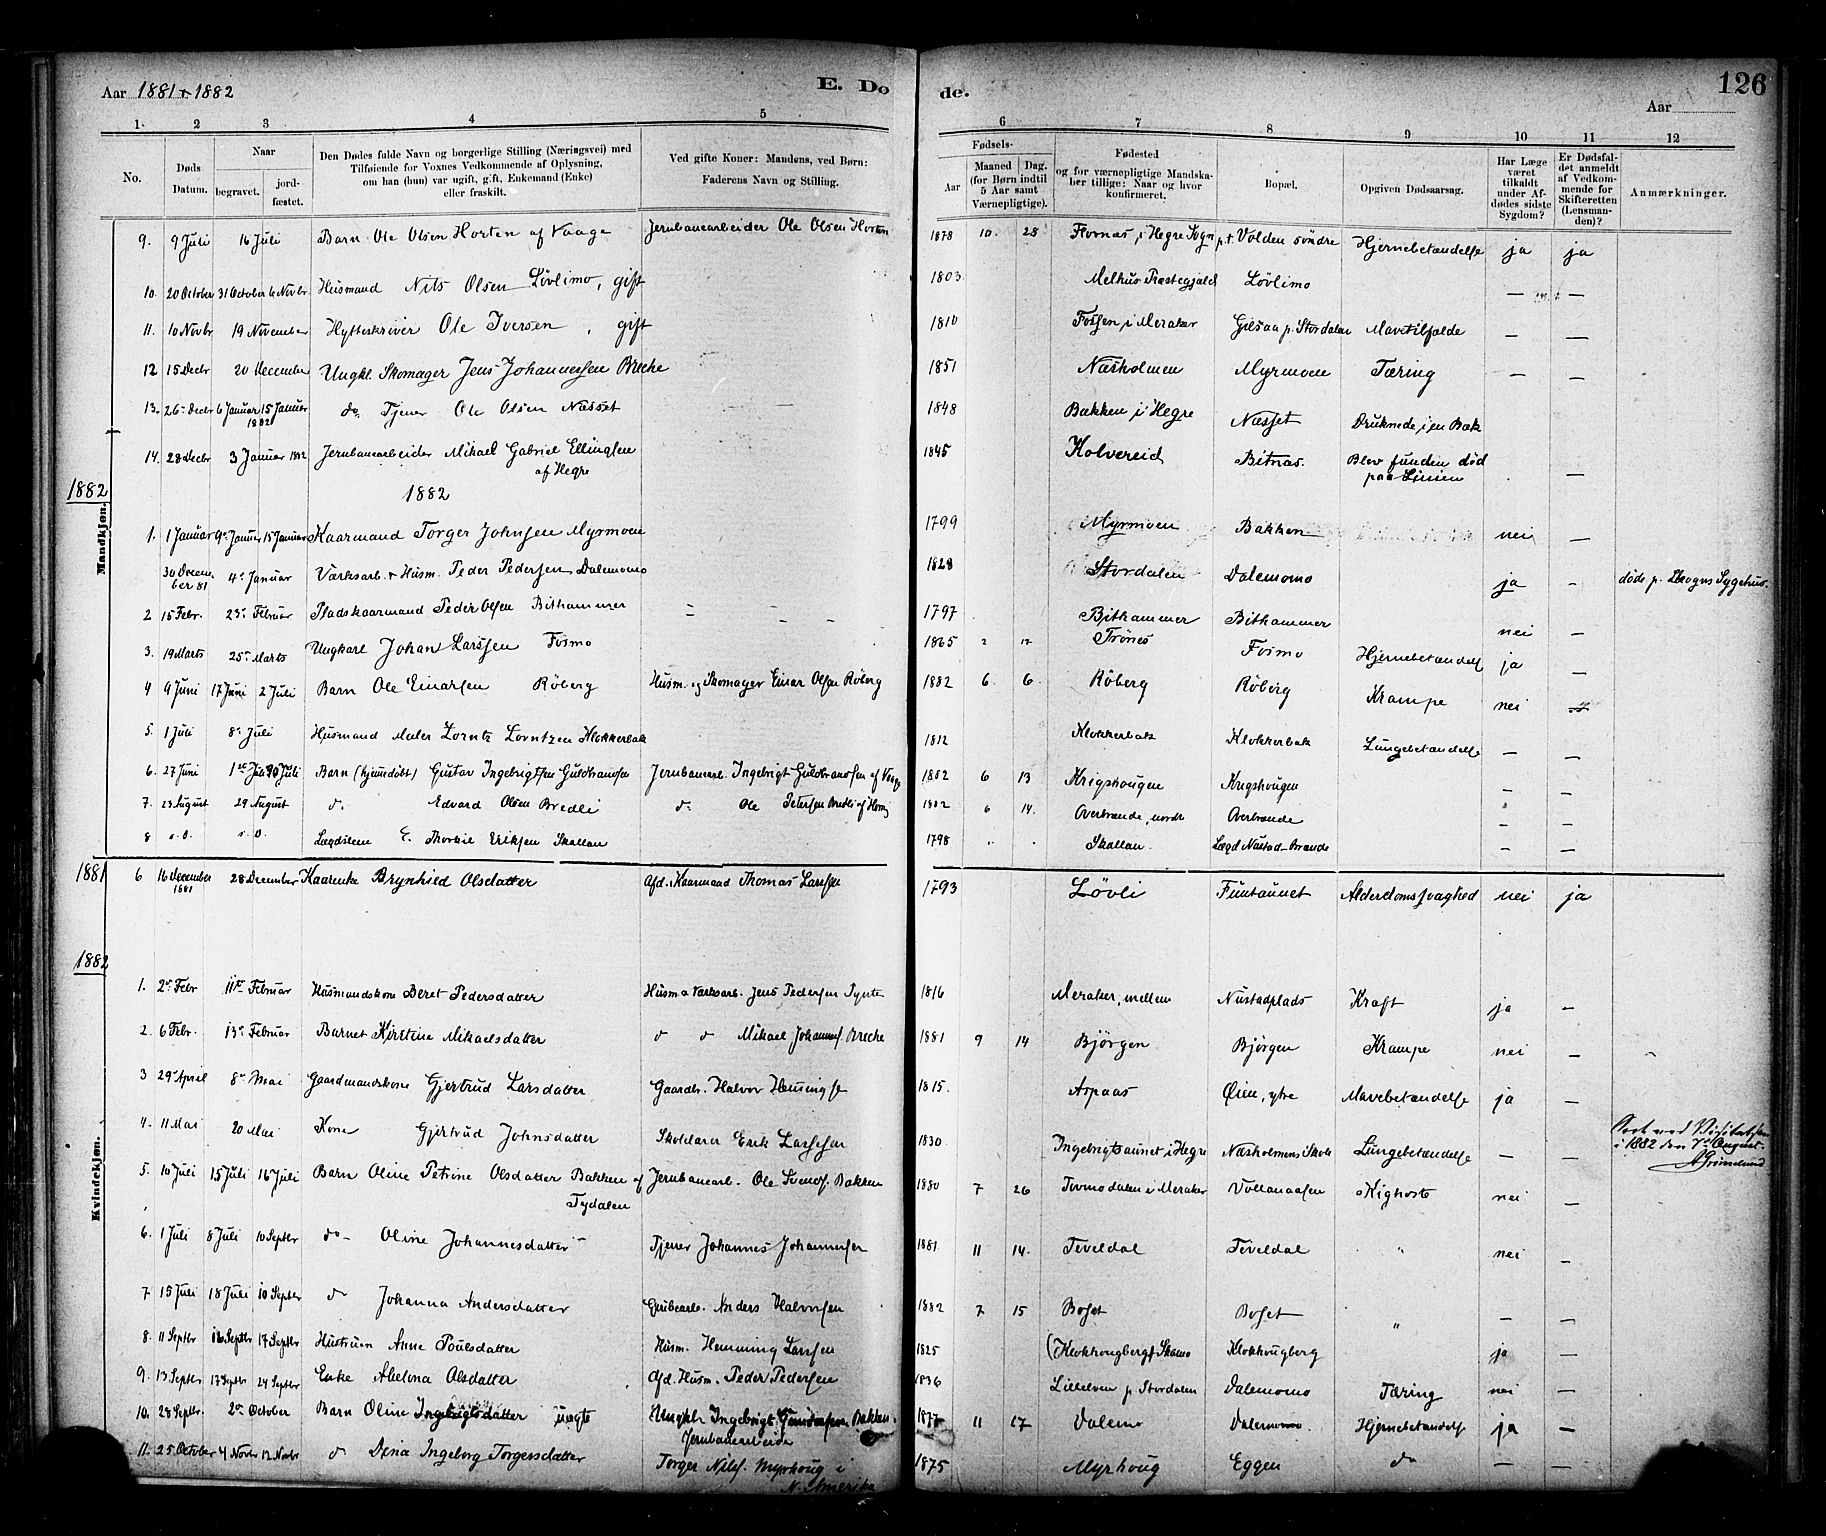 Aar 1881 + 1882 E. Do de. Aar 126
1 2 3 4 5 6 7 8 9 10 11 12
No. Døds Datum. Naar begravet. jord-fæstet. Den Dødes fulde Navn og borgerlige Stilling (Næringsvei) med Tilføiende for Voxnes Vedkommende af Oplysning, om han (hun) var ugift, gift, Enkemand (Enke) eller fraskilt. Ved gifte Koner: Mandens, ved Børn: Faderens Navn og Stilling. Fødsels- Aar Maaned Dag. (for Børn indtil 5 Aar samt Værnepligtige). Fødested og for værnepligtige Mandskaber tillige: Naar og hvor konfirmeret. Bopæl. Opgiven Dødsaarsag. Har Læge været tilkaldt under Afdødes sidste Sygdom? Er Dødsfaldet anmeldt af Vedkommende for Skifteretten (Lensmanden)? Anmærkninger.
9. 9 Juli 16 Juli Barn Ole Olsen Horten af Vaage Jernbanearbeider Ole Olsen Horten 1878 10. 28 Flornæs, i Hegre Sogn p.t. Volden søndre Hjernebetændelse ja ja
10. 20 October 31 October 6 Novbr. Husmand Nils Olsen Løvlimo, gift 1803 Melhus Præstegjeld Løvlimo — —
11. 10 Novbr 19 November Hytteskriver Ole Iversen, gift 1810 Fossen i Meraker Gilsaa p. Stordalen Mavetilfælde — —
12 15 Decbr 20 December Ungkl. Skomager Jens Johannessen Breche 1851 Næsholmen Myrmoen Tæring — —
13. 26 Decbr 6 Januar 1882 15 Januar do. Tjener Ole Olsen Næsset — 1848 Bakken i Hegre Næsset Druknede i en Bæk
14. 28 Decbr 3 Januar 1882 Jernbanearbeider Mikael Gabriel Ellingsen af Hegre 1845 Kolvereid Bitnæs. Blev funden død paa Linien —
1882
1882
Mandkjøn.
1. 1 Januar 9 Januar 15 Januar Kaarmand Torger Johnsen Myrmoen 1799 Myrmoen Bakken nei —
30 December 81 4 Januar Værksarb. + Husm. Peder Pedersen Dalemomo 1828 Stordalen Dalemomo ja - døde p. Sygehus.
2 15 Febr. 23 Februar Pladskaarmand Peder Olsen Bithammer 1797 Bithammer Bithammer nei —
3. 19 Marts 25 Marts Ungkarl Johan Larssen Fosmo 1865 2 17 Trönes Fosmo Hjernebetændelse ja —
4 9 Juni 17 Juni 2 Juli Barn Ole Einarsen Röberg Husm. og Skomager Einar Olsen Röberg 1882 6 6. Röberg Röberg Krampe nei
5. 1 Juli 8 Juli Husmand Maler Lorntz Lorntzen Klokkerbak 1812 Klokkerbak Klokkerbak Lungebetændelse — —
6. 27 Juni 1 Juli 30 Juli Barn (hjemmedøbt) Gustav Ingebrigtsen Guldbrandsen Jernbanearb. Ingebrigt Guldbrandsen af Vang 1882 6 13 Krigshougen Krigshougen — —
7. 23 August 29 August do. Edvard Olsen Bredli do. Ole Petersen Bredli 1882 6 14. Overbrænde, nordr Overbrænde — —
8 s. D. s. D. Lægdslem E. Thorkil Eriksen Skallan 1798 Skallan Lægd Nustad-Brænde — —
1881 6 16 December 1881 28 December Kaarenke Brynhild Olsdatter Afd. Kaarmand Thomas Larssen 1793 Lövli Funtaunet Alderdomssvaghed nei ja
1882
Kvindekjøn.
1. 2 Febr 11 Februar Husmandskone Beret Pedersdatter Husm & Værksarb. Jens Pedersen Pynten 1816 Meraker, mellem Nustadplads Kræft ja —
2. 6 Febr. 13 Februar Barnet Kirstine Mikaelsdatter do do Mikael Johannes. Breche 1881 9 14 Bjørgen Bjørgen Krampe nei —
3 29 April 8 Mai Gaardmandskone Gjertrud Larsdatter Gaardbr. Halvor Henningsen 1815. Aspaas Øien, ytre Mavebetændelse ja —
4. 11 Mai 20 Mai Kone Gjertrud Johnsdatter Skolelærer Erik Larssen 1830 Ingebrigtsaunet i Hegre Næsholmens Skole Lungebetændelse — — Seet ved Visitatsen i 1882 den 7 August. Grimelund
5. 10 Juli 15 Juli 16 Juli Barn Oline Petrine Olsdatter Bakken af Tydalen Jernbanearb. Ole Svends. Bakken 1880 7 26 Tovmodalen i Meraker Vollanaasen Kighoste nei —
6. 1 Juli 8 Juli 10 Septbr do- Oline Johannesdatter Tjener Johannes Johannessen 1881 11 14. Teveldal Teveldal " nei —
7 15 Juli 18 Juli 10 Septbr do Johanna Andersdatter Grubearb. Anders Halvorsen 1882 7 15 Boset Boset " — —
8. 11 Septbr 16 Septbr 17 Septbr Hustruen Anne Poulsdatter Husm. Henning Larssen 1825 Klokhougberget Klokhougberg ja —
9. 13 Septbr 17 Septbr 24 Septbr Enke Abelona Olsdatter Afd. Husm. Peder Pedersen 1836 Lillelven p. Stordalen Dalemomo Tæring nei —
10. 28 Septbr. 2 October Barn Oline Ingebrigtsdatter uægte Ungkl. Ingebrigt Bakken, Jernbanearbeider 1877 11 17 Dalemo Dalemomo Hjernebetændelse ja —
11. 25 October 4 Novbr 12 Novbr do Dina Ingeborg Torgersdatter Torger Nils. Myrhoug i N. Amerika 1875 Myrhoug Eggen do — —